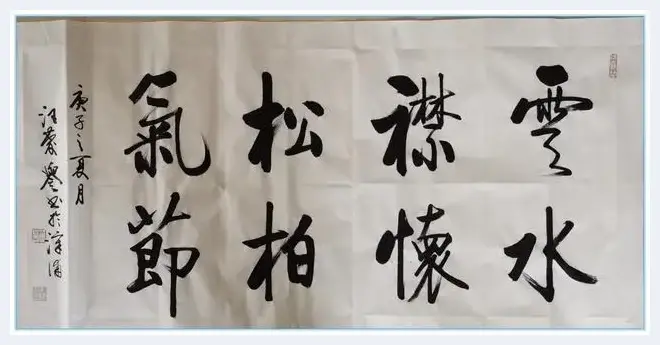 雲水
襟懷
松柏
氣節
庚子之夏月